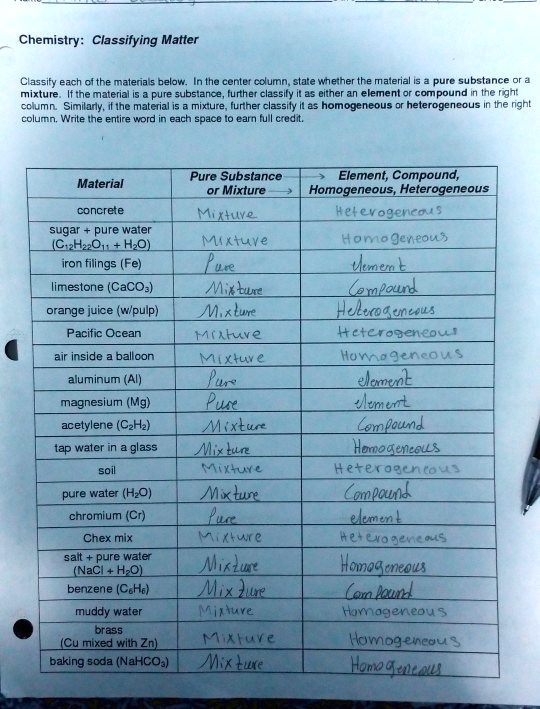 Chemistry: Classifying Matter
Classify each of the materials below. In the center column, state whether the material is a pure substance or a
mixture. If the material is a pure substance, further classify it as either an element or compound in the right
column. Similarly, if the material is a mixture, further classify it as homogeneous or heterogeneous in the right
column. Write the entire word in each space to earn full credit.
Material Pure Substance or Mixture → → Element, Compound, Homogeneous, Heterogeneous
concrete Mixture Heterogeneous
sugar + pure water (C₁₂H₂₂O₁₁ + H₂O) Mixture Homogeneous
iron filings (Fe) Pure element
limestone (CaCO₃) Mixture Compound
orange juice (w/pulp) Mixture Heterogeneous
Pacific Ocean Mixture Heterogeneous
air inside a balloon Mixture Homogeneous
aluminum (Al) Pure element
magnesium (Mg) Pure element
acetylene (C₂H₂) Mixture Compound
tap water in a glass Mixture Homogeneous
soil Mixture Heterogeneous
pure water (H₂O) Mixture Compound
chromium (Cr) Pure element
Chex mix Mixture Heterogeneous
salt + pure water (NaCl + H₂O) Mixture Homogeneous
benzene (C₆H₆) Mixture Compound
muddy water Mixture Homogeneous
brass (Cu mixed with Zn) Mixture Homogeneous
baking soda (NaHCO₃) Mixture Homogeneous